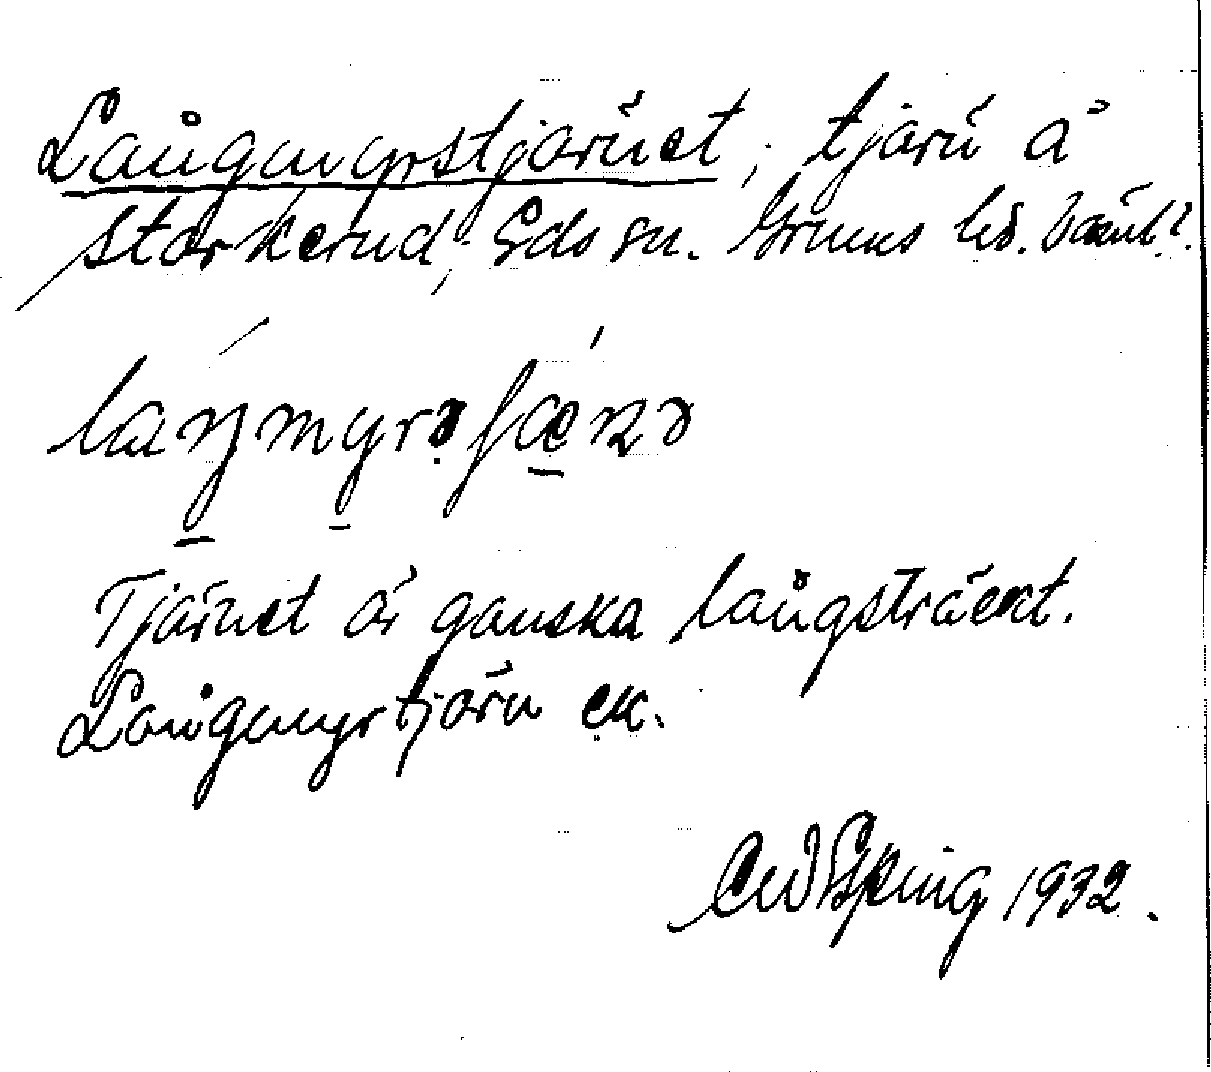 Långmyrstjärnet, tjärn å
Storkerud, Eds sn. Grums hd. Värml.
laŋmyrəʃæ̱nə
Tjärnet är ganska långsträckt.
Långmyrtjärn ek.
1932.